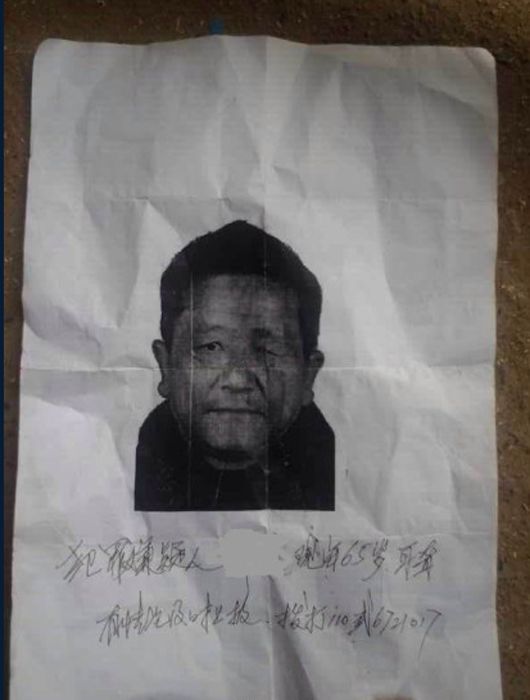 犯罪嫌疑人 现年65岁 耳聋
有线索及时上报、拨打110或6721017